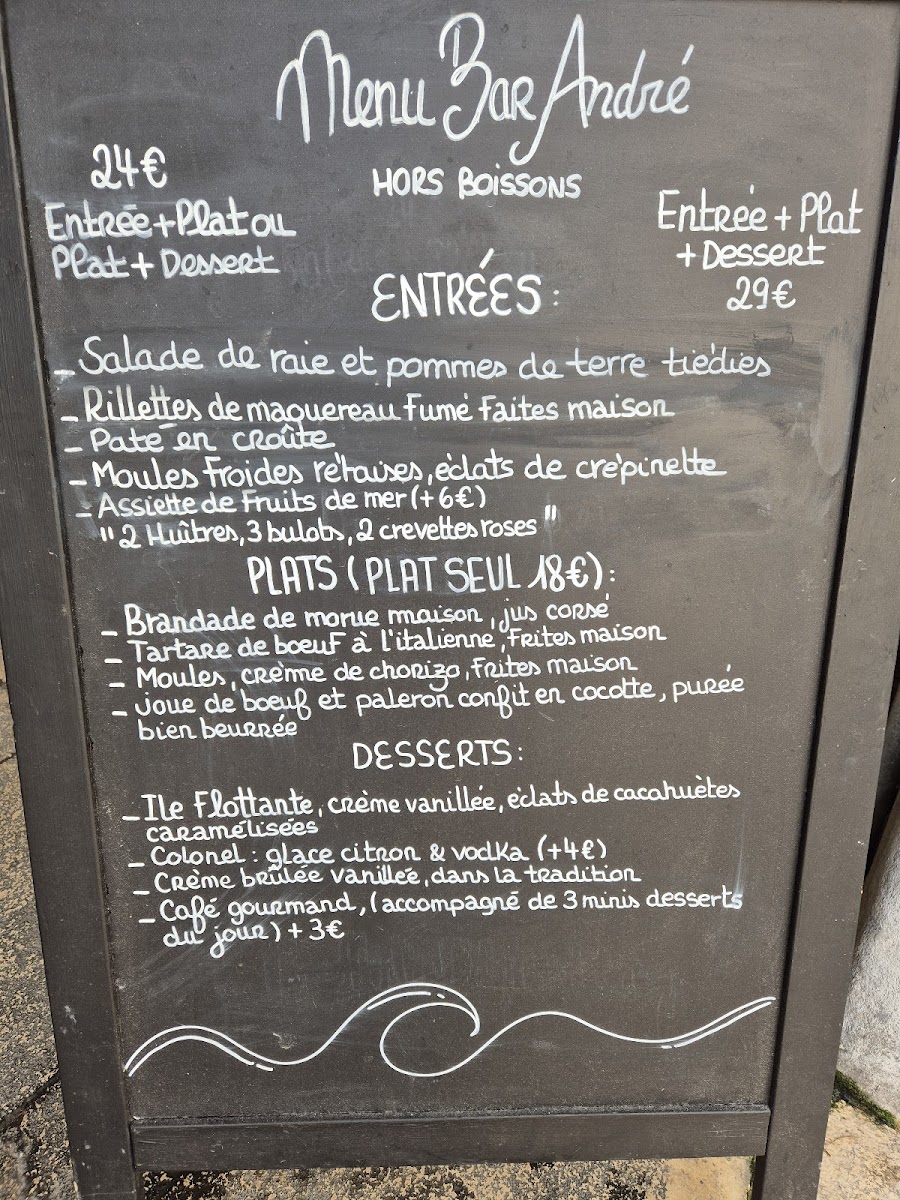 Menu Bar André
24€
Entrée + Plat ou
Plat + Dessert
HORS BOISSONS
Entrée + Plat
+ Dessert
29€
ENTRÉES :
- Salade de raie et pommes de terre tiédies
- Rillettes de maquereau Fumé Faites maison
- Paté en croûte
- Moules Froides rétaises, éclats de crépinette
- Assiette de Fruits de mer (+6€)
" 2 Huîtres, 3 bulots, 2 crevettes roses "
PLATS (PLAT SEUL 18€) :
- Brandade de morue maison, jus corsé
- Tartare de boeuf à l'italienne, Frites maison
- Moules, crème de chorizo, Frites maison
- Joue de boeuf et paleron confit en cocotte, purée
bien beurrée
DESSERTS :
- Ile Flottante, crème vanillée, éclats de cacahuètes
caramélisées
- Colonel : glace citron & vodka (+4€)
- Crème brûlée vanillée, dans la tradition
- Café gourmand, (accompagné de 3 minis desserts
du jour) + 3€